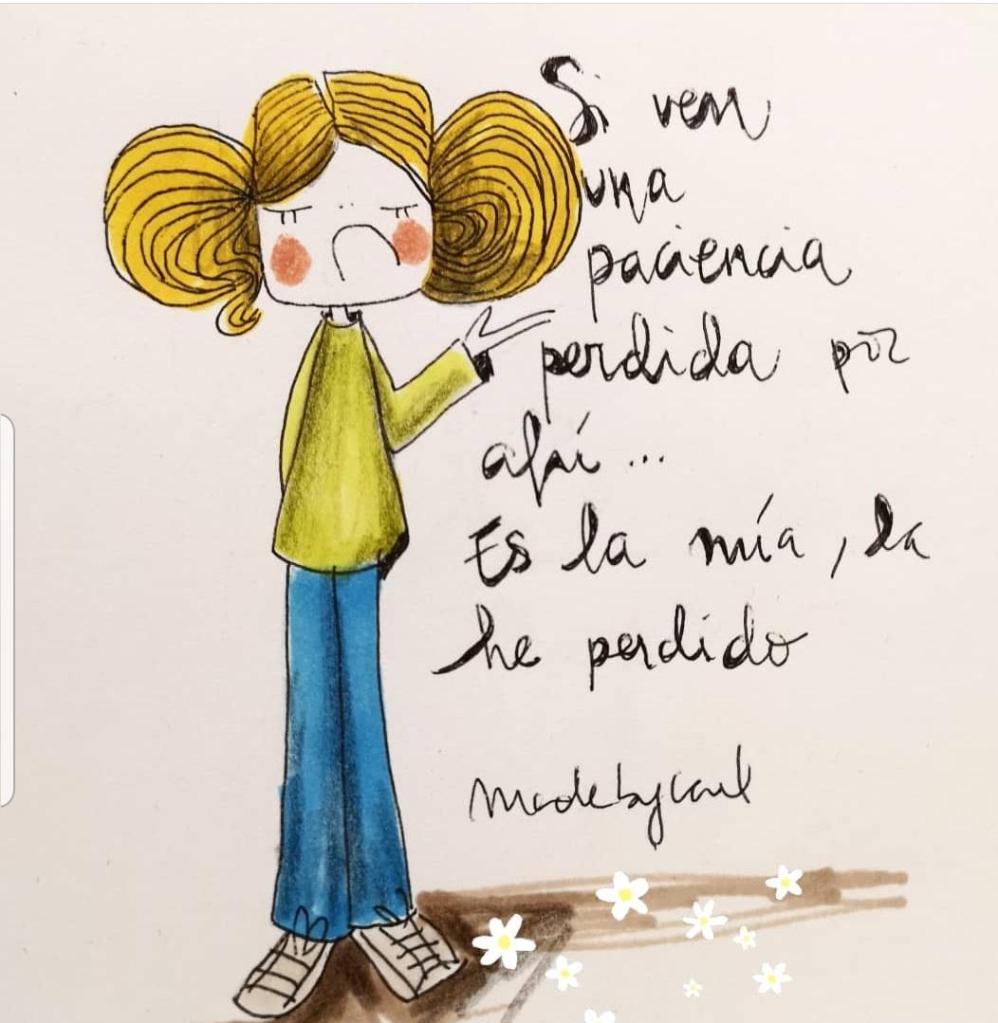 Si ven
una
paciencia
perdida por
ahí...
Es la mía, la
he perdido
madebycarol